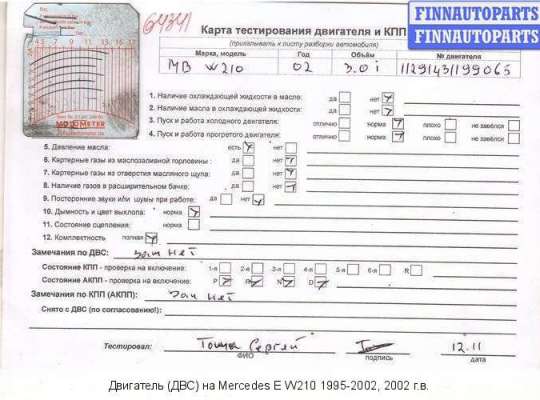 FINNAUTOPARTS
FINNAUTOPARTS
G4341
Карта тестирования двигателя и КПП
(прикалывать к листу разборки автомобиля)
Марка, модель год Объём № двигателя
MB W210 02 3.0i 11291431199065
MOTOMETER
1. Наличие охлаждающей жидкости в масле: да нет
2. Наличие масла в охлаждающей жидкости: да нет
3. Пуск и работа холодного двигателя: отлично норма плохо не завёлся
4. Пуск и работа прогретого двигателя: отлично норма плохо не завёлся
5. Давление масла: есть нет
6. Картерные газы из маслозаливной горловины : да нет
7. Картерные газы из отверстия масляного щупа: да нет
8. Наличие газов в расширительном бачке: да нет
9. Посторонние звуки или шумы при работе: да нет
10. Дымность и цвет выхлопа: норма
11. Состояние сцепления: норма
12. Комплектность полная
Замечания по ДВС: Зам нет
Состояние КПП - проверка на включение: 1-я 2-я 3-я 4-я 5-я 6-я R
Состояние АКПП - проверка на включение: P R N D
Замечания по КПП (АКПП): Зам нет
Снято с ДВС (по согласованию!):
Тестировал: Сергей 12.11
ФИО подпись дата
Двигатель (ДВС) на Mercedes E W210 1995-2002, 2002 г.в.